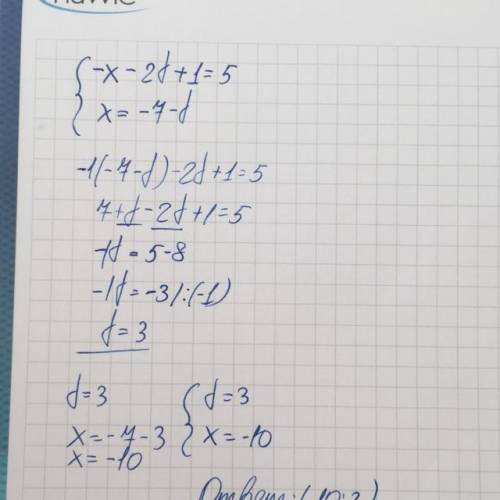 { -x - 2y + 1 = 5
{ x = -7 - y
-1(-7 - y) - 2y + 1 = 5
7 + y - 2y + 1 = 5
-1y = 5 - 8
-1y = -3 | :(-1)
y = 3
y = 3
x = -7 - 3
x = -10
{ y = 3
{ x = -10
Ответ: (-10; 3)